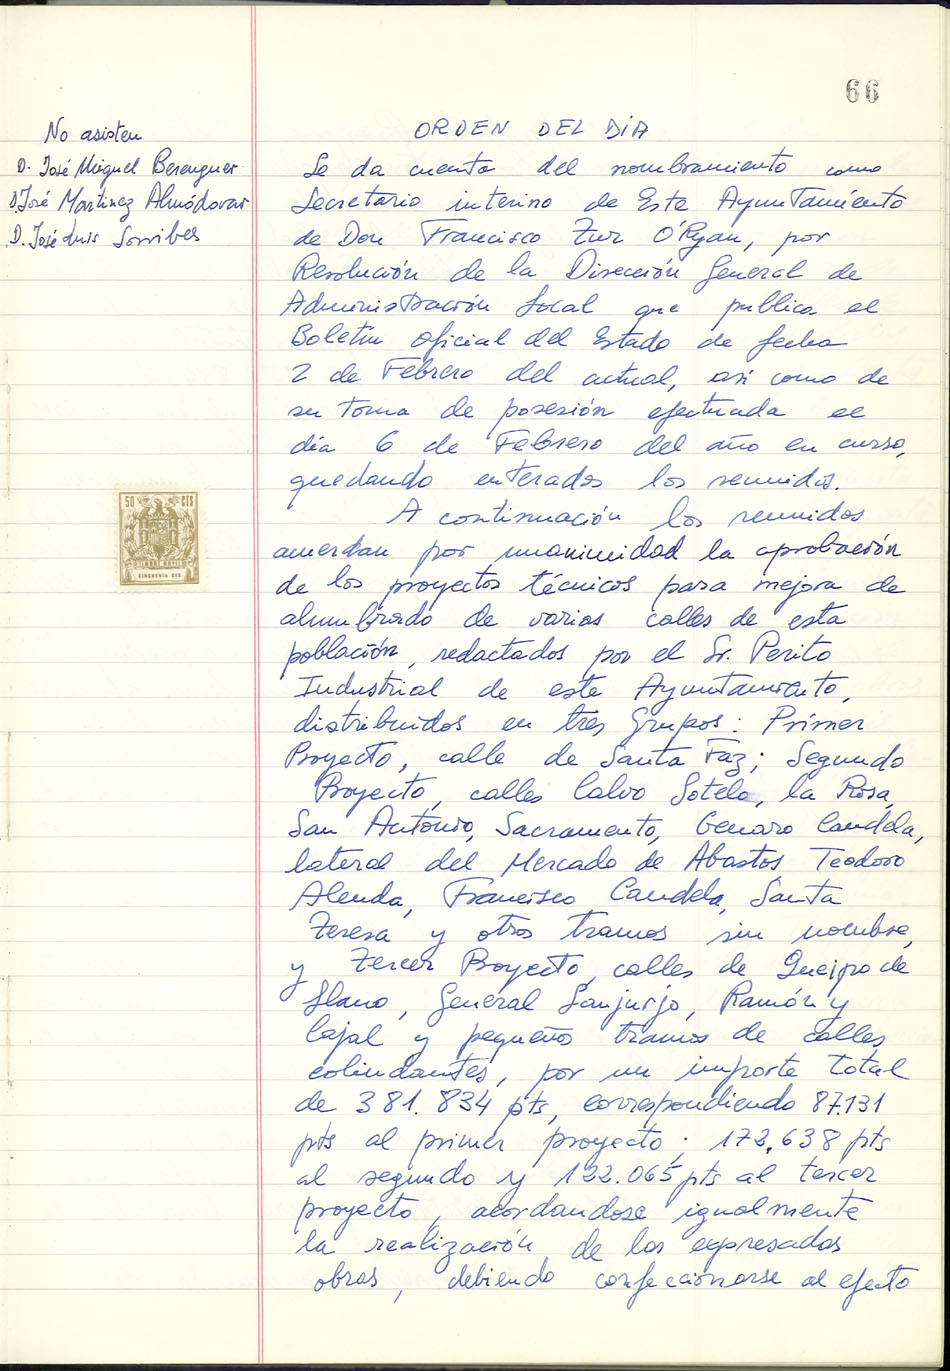 66
No asisten
D. José Miguel Berenguer
D. José Martinez Almódovar
D. José Luis Sorribes
50 CTS
TIMBRE MOVIL
CINCUENTA CTS
ORDEN DEL DÍA
Se da cuenta del nombramiento como
Secretario interino de Este Ayuntamiento
de Don Francisco Zur O'Ryan, por
Resolución de la Dirección General de
Administración Local que publica el
Boletin oficial del Estado de fecha
2 de Febrero del actual, asi como de
su toma de posesión efectuada el
día 6 de Febrero del año en curso,
quedando enterados los reunidos.
A continuación los reunidos
acuerdan por unanimidad la aprobación
de los proyectos técnicos para mejora de
alumbrado de varias calles de esta
población, redactados por el Sr. Perito
Industrial de este Ayuntamiento,
distribuidos en tres Grupos: Primer
Proyecto, calle de Santa Faz; Segundo
Proyecto, calles Calvo Sotelo, la Rosa,
San Antonio, Sacramento, Genaro Candela,
lateral del Mercado de Abastos Teodoro
Alenda, Francisco Candela, Santa
Teresa y otros tramos sin nombre,
y Tercer Proyecto, calles de Queipo de
Llano, General Sanjurjo, Ramón y
Cajal y pequeños tramos de calles
colindantes, por un importe total
de 381.834 pts, correspondiendo 87.131
pts al primer proyecto; 172.638 pts
al segundo y 122.065 pts al tercer
proyecto, acordandose igualmente
la realización de las expresadas
obras, debiendo confeccionarse al efecto